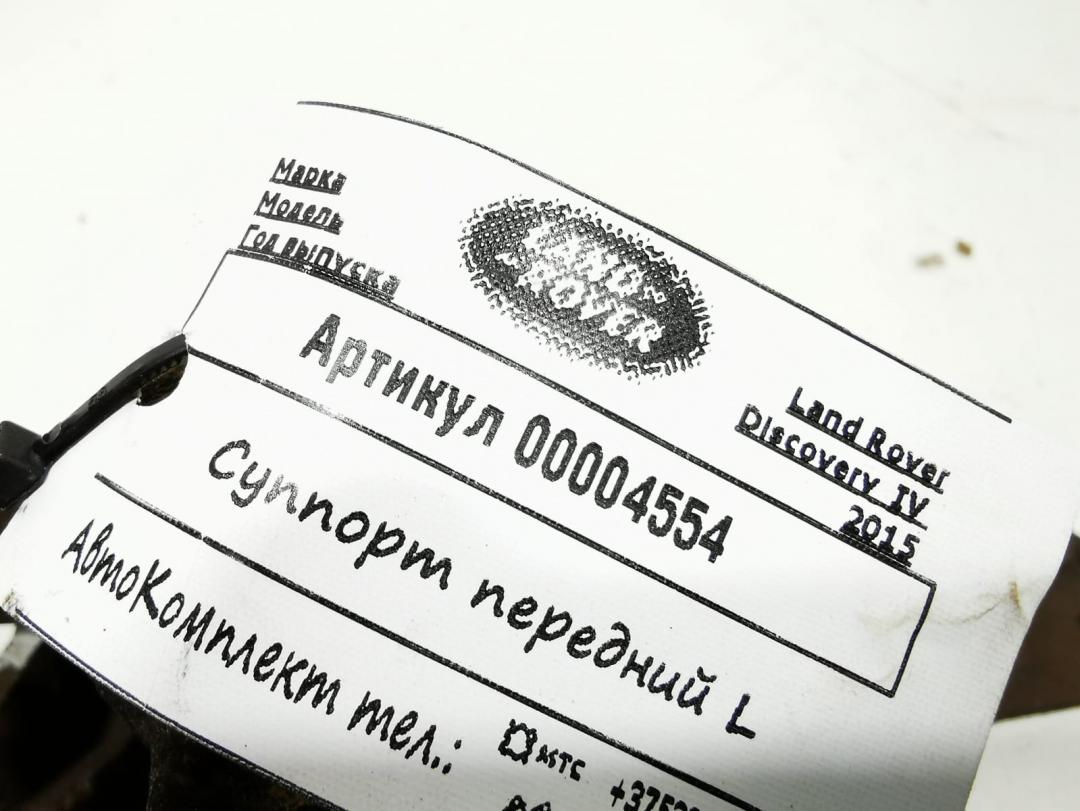 Марка
Модель
Год выпуска
LAND
ROVER
Land Rover
Discovery IV
2015
Артикул 00004554
Суппорт передний L
АвтоКомплект тел.:
мтс